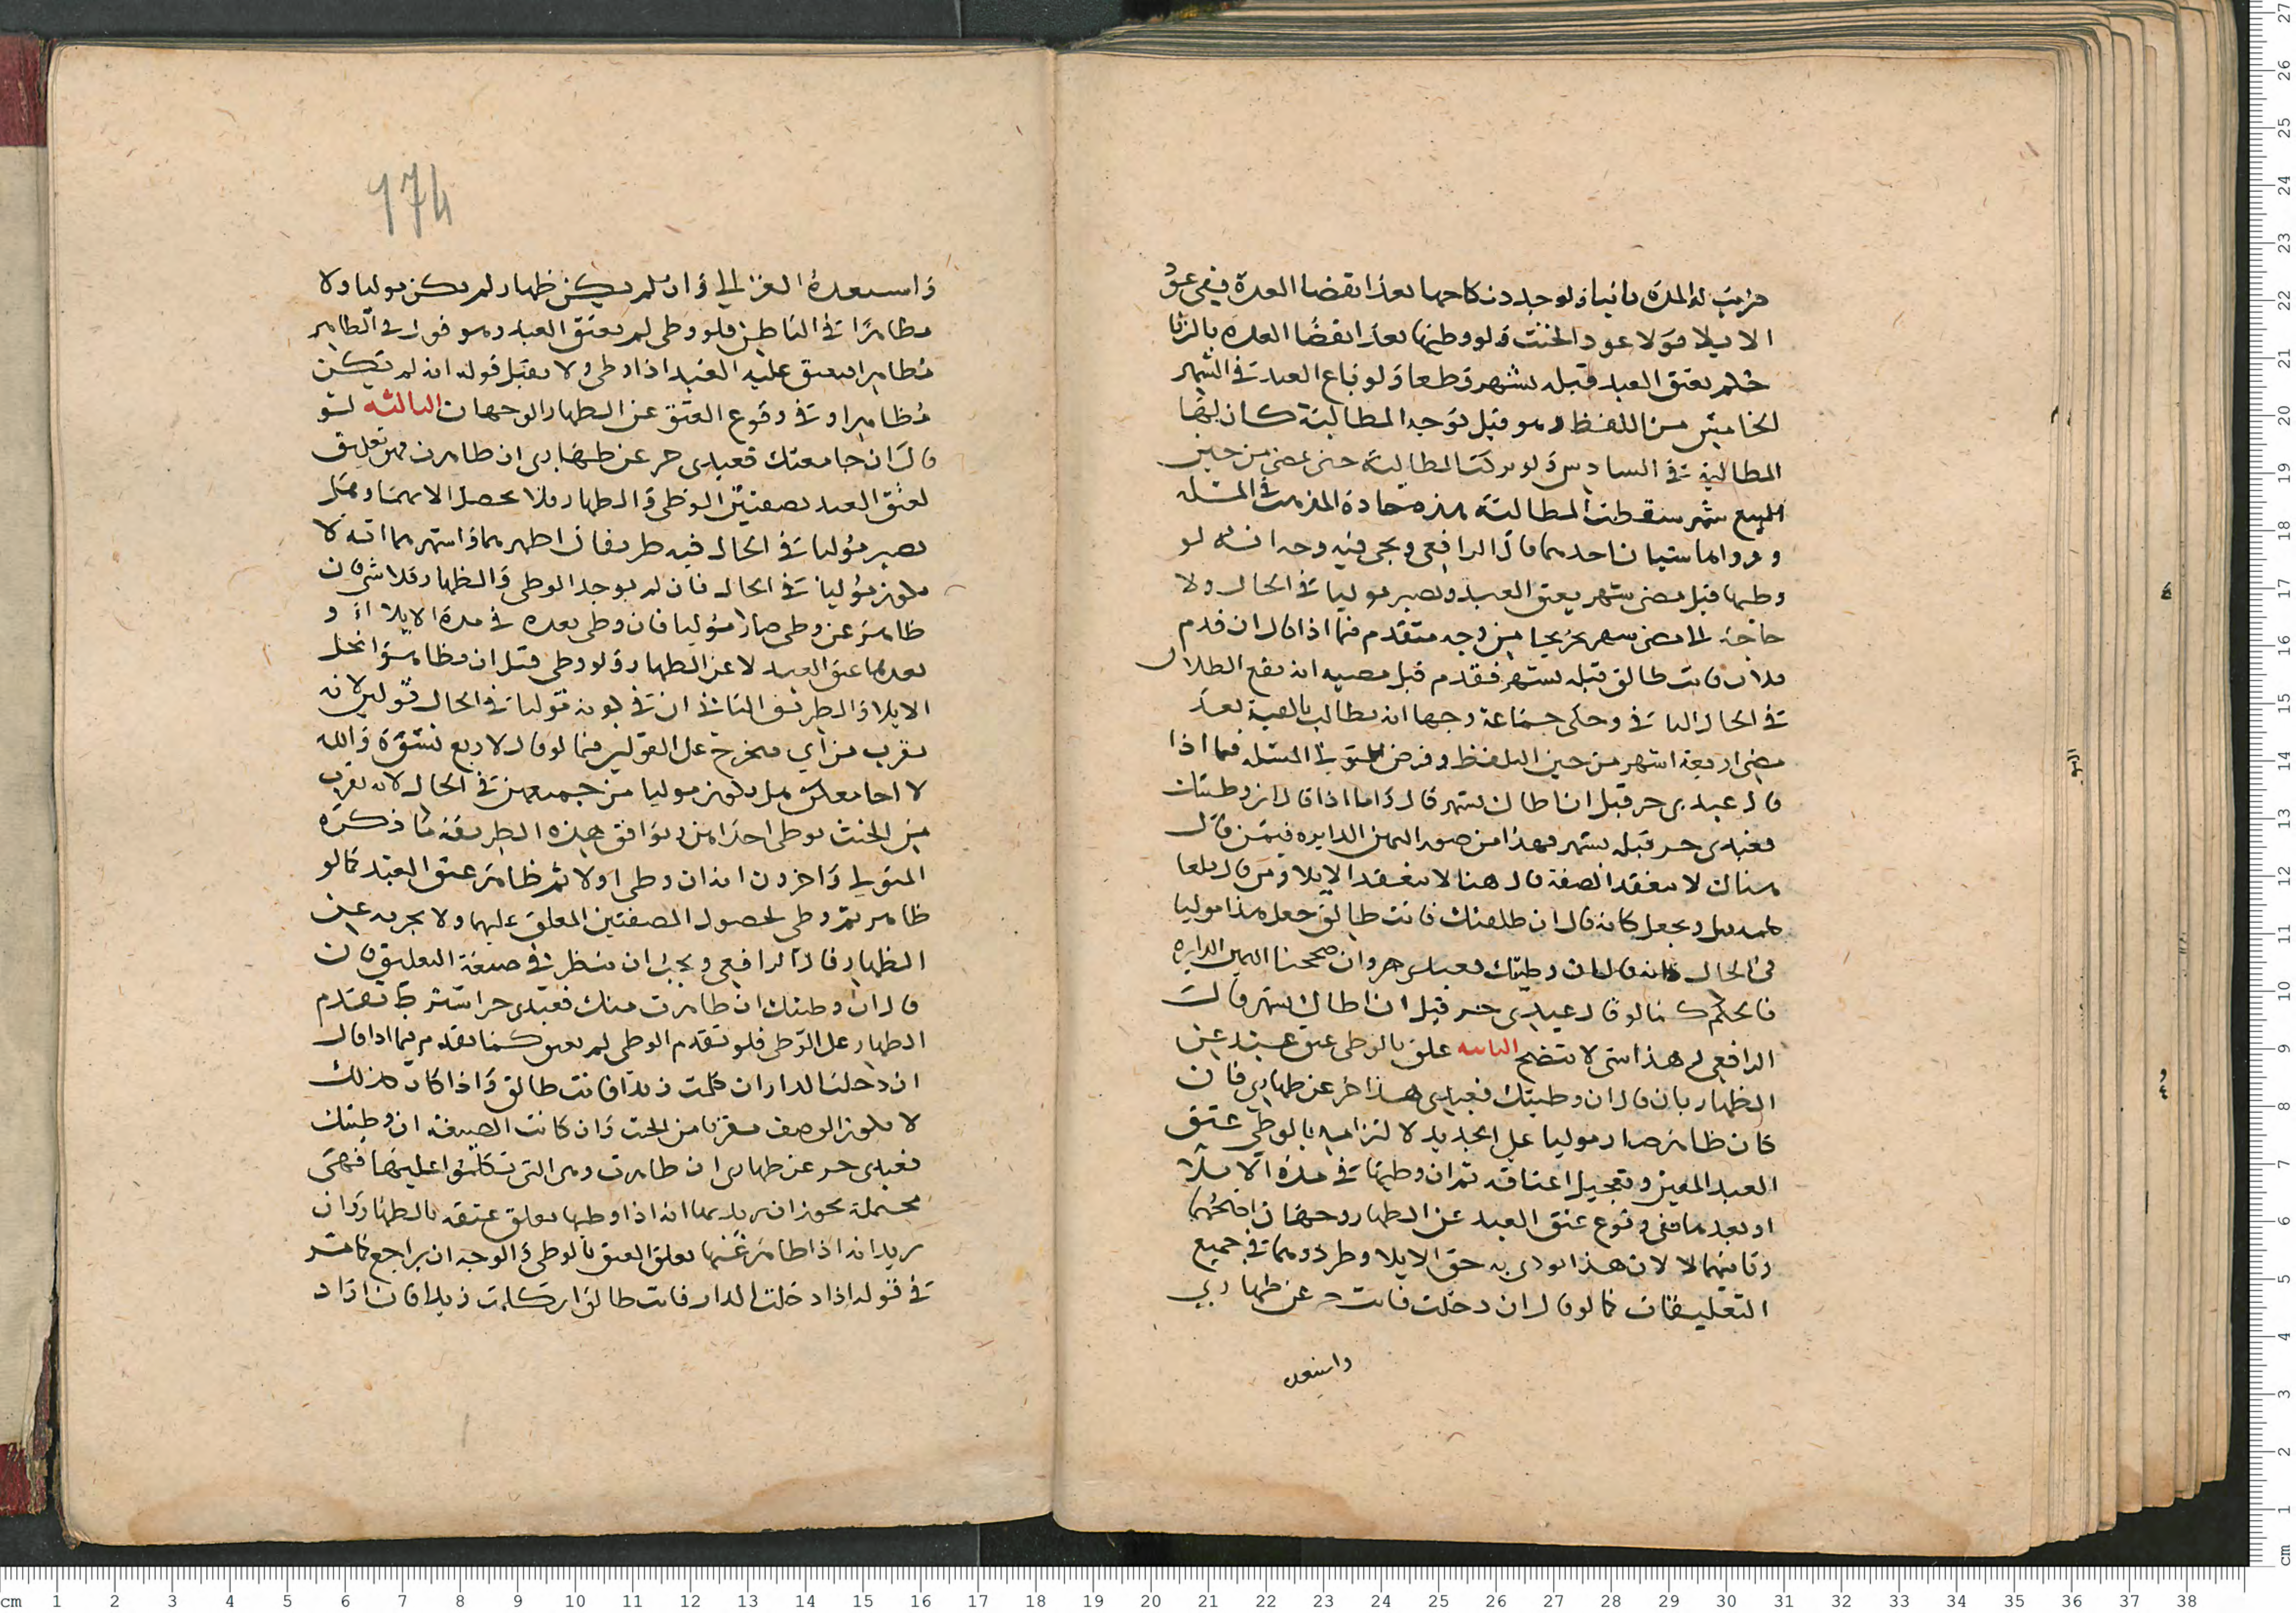 ضربت له المدة ثانيا ولو جدد نكاحها بعد انقضا العدة ففي عود
الايلا قولا عود الحنث ولو وطيها بعد انقضا العده بالزنا
لم يعتق العبد قبله بشهر قطعا ولو باع العبد في الشهر
الخامس من اللفظ وهو قبل توجه المطالبة كان لها
المطالبة في السادس ولو تركت المطالبة حتى مضى من حين
البيع شهر سقطت المطالبة هذه جادة المذهب في المسله
ووراها شيان احدهما قال الرافعي ويجي فيه وجه انه لو
وطيها قبل مضى شهر يعتق العبد ويصير موليا في الحال ولا
حاجة الى مضى شهر تخريجا من وجه متقدم فيما اذا قال ان قدم
فلان فانت طالق قبله بشهر فقدم قبل مضيه انه يقع الطلاق
في الحال الثاني وحكى جماعة وجها انه يطالب بالفية بعد
مضي اربعة اشهر من حين اللفظ وفرض المتولي المسله فيما اذا
قال عبدي حر قبل ان اطاك بشهر قال واما اذا قال ان وطيتك
فعبدي حر قبله بشهر فهذا من صور اليمين الدايره فمن قال
هناك لا تنعقد الصفة قال هنا لا ينعقد الايلا ومن قال يلغا
قبل ويجعل كانه قال ان طلقتك فانت طالق جعل هذا موليا
في الحال كانه قال ان وطيتك فعبدي حر وان صححنا اليمين الدايره
فالحكم كما لو قال عبدي حر قبل ان اطاك بشهر قالت
الرافعي لم هذا شي لا يتضح الثانيه علق بالوطي عتق عبد عن
الظهار بان قال ان وطيتك فعبدي هذا حر عن ظهاري فان
كان ظاهر صار موليا على الجديد لالتزامه بالوطي عتق
العبد المعين وتعجيل اعتاقه ثم ان وطيها في مدة الايلا
او بعدها ففي وقوع عتق العبد عن الظهار وجهان اصحهما نعم
وثانيهما لا لان هذا تودى به حق الايلا وطردوهما في جميع
التعليقات كما لو قال ان دخلت فانت حر عن ظهاري
واستبعده
174
واستبعده الغزالي وان لم يكن ظهار لم يكن موليا ولا
مظاهرا في الباطن فلو وطى لم يعتق العبد وهو قول في الظاهر
مظاهرا فيعتق عليه العبد اذا وطى ولا يقبل قوله انه لم يكن
مظاهرا وفي وقوع العتق عن الظهار الوجهان الثالثه لو
قال ان جامعتك فعبدي حر عن ظهاري ان ظاهرت فهو تعليق
لعتق العبد بصفتين الوطي والظهار فلا يحصل الا بهما وهل
يصير موليا في الحال فيه طريقان اظهرهما واشهرهما انه لا
يكون موليا في الحال فان لم يوجد الوطي والظهار فلا شي فان
ظاهر عن وطى صار موليا فان وطى بعده في مدة الايلا او
بعدها عتق العبد لا عن الظهار ولو وطى قبل ان يظاهر انحل
الايلا والطريق الثاني ان في كونه موليا في الحال قولين لانه
يقرب من اي مخرج على القولين فيما لو قال لاربع نسوة والله
لا اجامعكن هل يكون موليا من جميعهن في الحال لانه يقرب
من الحنث بوطى احداهن ويوافق هذه الطريقة ما ذكره
المتولي واخرون انه ان وطى اولا ثم ظاهر عتق العبد كما لو
ظاهر ثم وطى لحصول الصفتين المعلق عليهما ولا يجريه عن
الظهار قال الرافعي ويجب ان ينظر في صيغة التعليق فان
قال ان وطيتك ان ظاهرت منك فعبدي حر اشترط تقدم
الظهار على الوطى فلو تقدم الوطى لم يعتق كما تقدم فيما اذا قال
ان دخلت الدار ان كلمت زيدا فانت طالق واذا كان كذلك
لا يكون الوصف مقربا من الحنث وان كانت الصيغة ان وطيتك
فعبدي حر عن ظهاري ان ظاهرت وهي التي تكلموا عليها فهي
محتملة يجوز ان يريد بها انه اذا وطيها تعلق عتقه بالظهار وان
يريد انه اذا ظاهر عنها تعلق العتق بالوطى والوجه ان يراجع كما مر
في قوله اذا دخلت الدار فانت طالق ان كلمت زيدا فان اراد